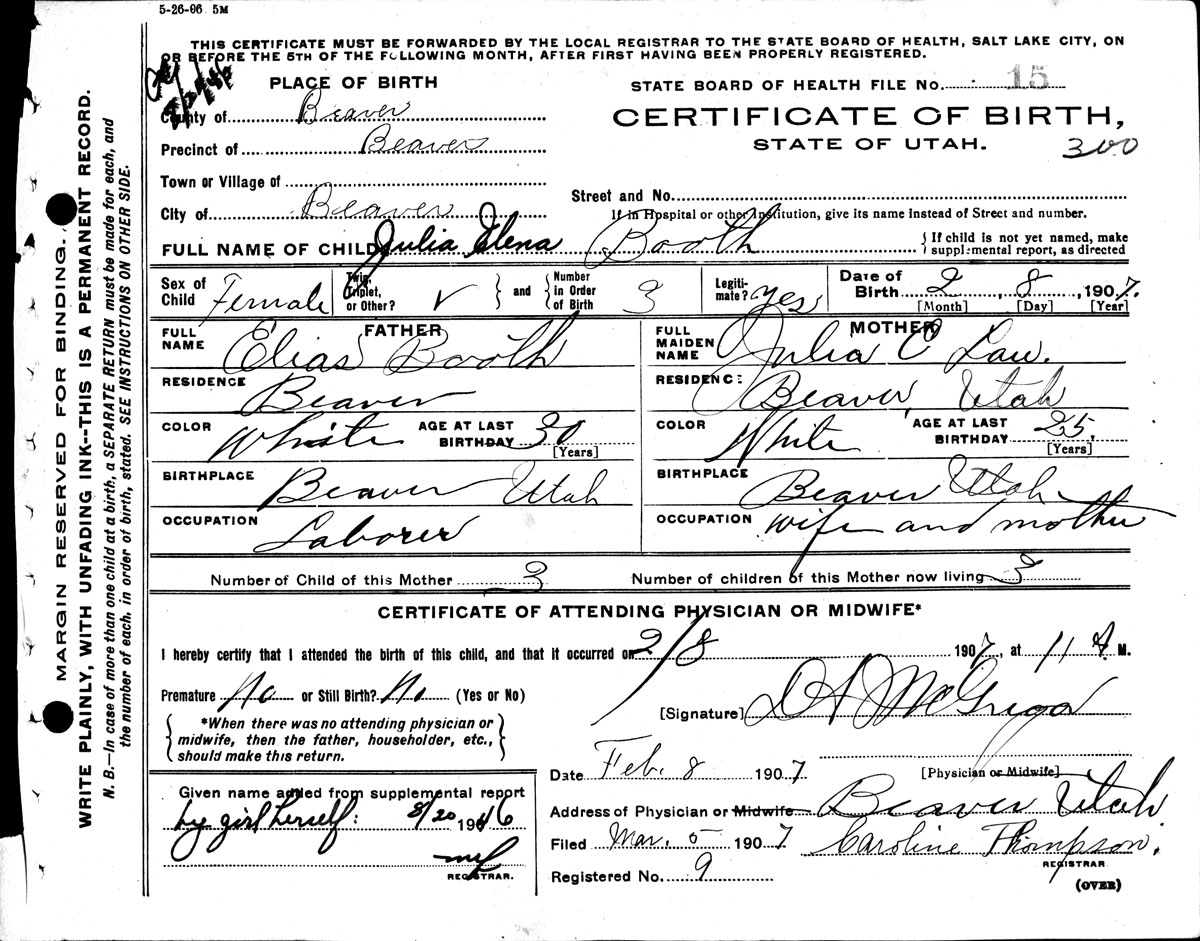 5-26-06 5M
THIS CERTIFICATE MUST BE FORWARDED BY THE LOCAL REGISTRAR TO THE STATE BOARD OF HEALTH, SALT LAKE CITY, ON
OR BEFORE THE 5TH OF THE FOLLOWING MONTH, AFTER FIRST HAVING BEEN PROPERLY REGISTERED.
PLACE OF BIRTH
STATE BOARD OF HEALTH FILE No. 15
County of Beaver
CERTIFICATE OF BIRTH,
Precinct of Beaver
STATE OF UTAH.
300
Town or Village of
Street and No.
City of Beaver
If in Hospital or other Institution, give its name instead of Street and number.
FULL NAME OF CHILD Julia Elena Booth
If child is not yet named, make
supplemental report, as directed
Sex of Child Female
Twin, Triplet, or Other? and Number in Order of Birth 3
Legiti-mate? Yes
Date of Birth 2, 8, 1907.
[Month] [Day] [Year]
FATHER
FULL NAME Elias Booth
RESIDENCE Beaver
COLOR White AGE AT LAST BIRTHDAY 30
[Years]
BIRTHPLACE Beaver Utah
OCCUPATION Laborer
MOTHER
FULL MAIDEN NAME Julia C Law.
RESIDENCE: Beaver, Utah
COLOR White AGE AT LAST BIRTHDAY 25
[Years]
BIRTHPLACE Beaver Utah
OCCUPATION wife and mother
Number of Child of this Mother 3 Number of children of this Mother now living 3
CERTIFICATE OF ATTENDING PHYSICIAN OR MIDWIFE*
I hereby certify that I attended the birth of this child, and that it occurred on 2/8 1907, at 11 A M.
Premature No or Still Birth? No (Yes or No)
[Signature]
*When there was no attending physician or
midwife, then the father, householder, etc.,
should make this return.
Date Feb. 8 1907
[Physician or Midwife]
Given name added from supplemental report
by girl herself: 8/20 1946
REGISTRAR.
Address of Physician or Midwife Beaver Utah
Filed Mar. 5 1907 Caroline Thompson.
REGISTRAR
Registered No. 9
(OVER)
MARGIN RESERVED FOR BINDING.
WRITE PLAINLY, WITH UNFADING INK--THIS IS A PERMANENT RECORD.
N. B.—In case of more than one child at a birth, a SEPARATE RETURN must be made for each, and
the number of each, in order of birth, stated. SEE INSTRUCTIONS ON OTHER SIDE.